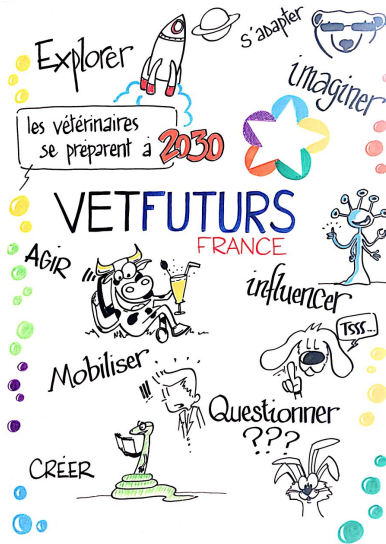 Explorer
s'adapter
imaginer
les vétérinaires
se préparent à 2030
VETFUTURS
FRANCE
AGIR
influencer
TSSS...
Mobiliser
!!!
Questionner
???
CRÉER